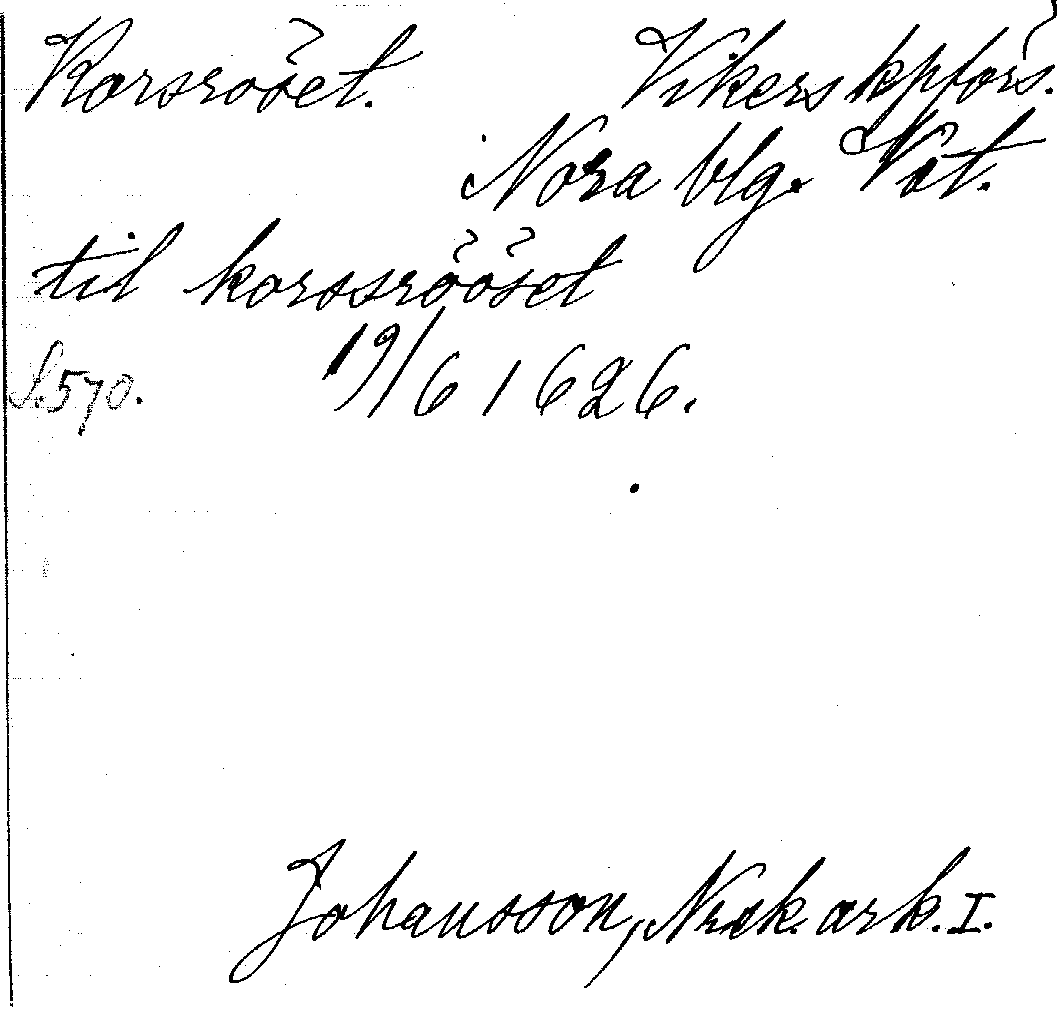 Korsröset. Vikers kpförs.
Nora blg. Väst.
til korssrööset
S. 570. 19/6 1626.
Johansson, Nor.ark. I.